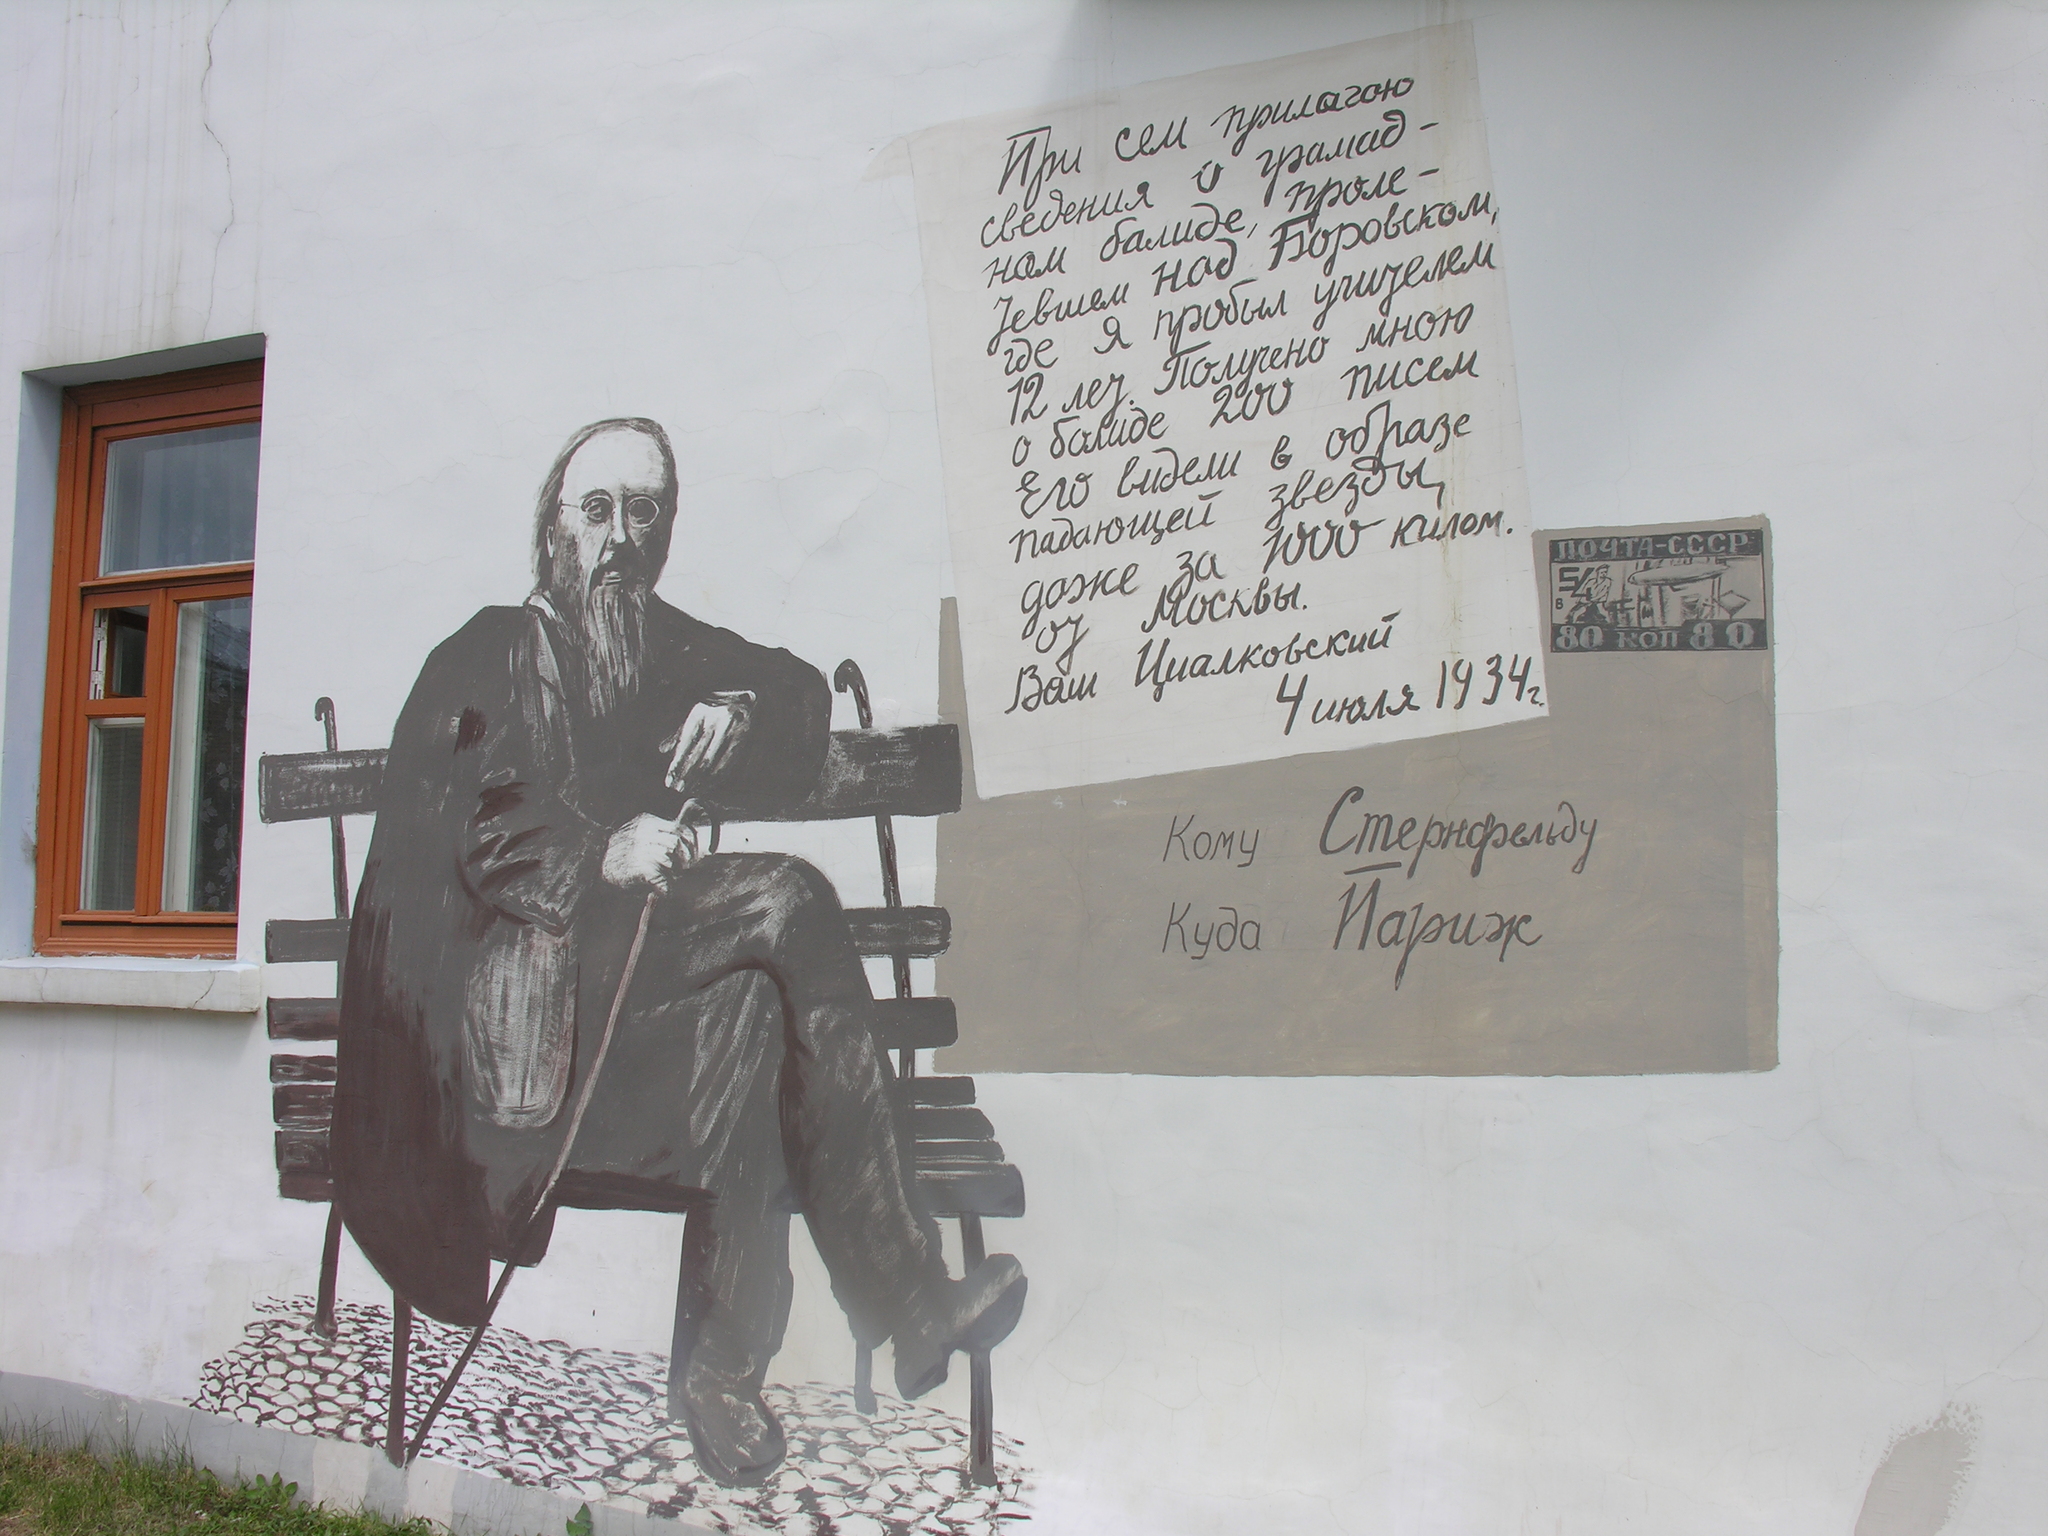 При сем прилагаю
сведения о грамад-
ном балиде, проле-
тевшем над Боровском,
где я пробыл учителем
12 лет. Получено мною
о балиде 200 писем
Его видели в образе
падающей звезды,
даже за 1000 килом.
от Москвы.
Ваш Циалковский
4 июля 1934 г.
ПОЧТА-СССР
5/4
в
80 КОП 80
Кому Стернфельду
Куда Париж